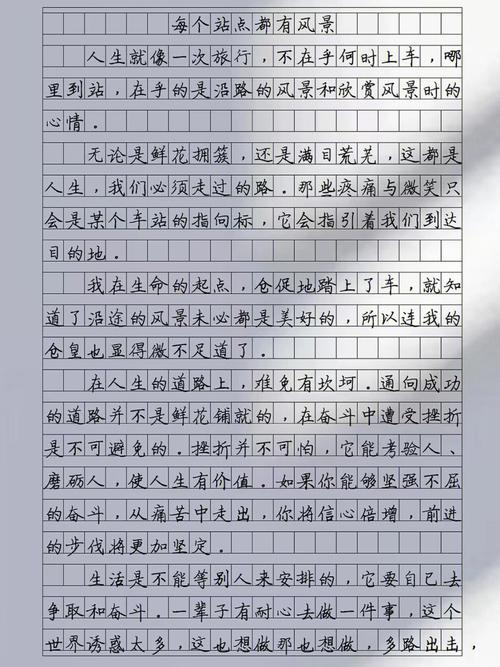 每个站点都有风景
人生就像一次旅行，不在乎何时上车，哪
里到站，在乎的是沿路的风景和欣赏风景时的
心情．
无论是鲜花拥簇，还是满目荒芜，这都是
人生，我们必须走过的路．那些疼痛与微笑只
会是某个车站的指向标，它会指引着我们到达
目的地．
我在生命的起点，仓促地踏上了车，就知
道了沿途的风景未必都是美好的，所以连我的
仓皇也显得微不足道了．
在人生的道路上，难免有坎坷．通向成功
的道路并不是鲜花铺就的，在奋斗中遭受挫折
是不可避免的．挫折并不可怕，它能考验人、
磨砺人，使人生有价值．如果你能够坚强不屈
的奋斗，从痛苦中走出，你将信心倍增，前进
的步伐将更加坚定．
生活是不能等别人来安排的，它要自己去
争取和奋斗．一辈子有耐心去做一件事，这个
世界诱惑太多，这也想做那也想做，多路出击，